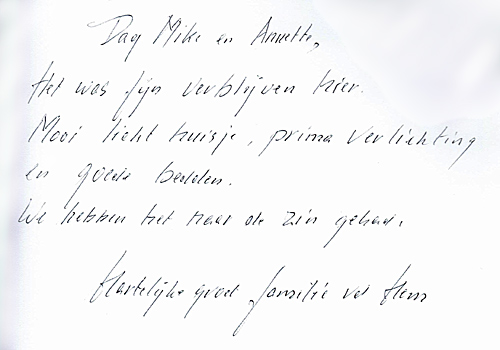 Dag Mike en Annette,
Het was fijn verblijven hier.
Mooi licht huisje, prima verlichting
en goede bedden.
We hebben het naar de zin gehad.
Hartelijke groet familie